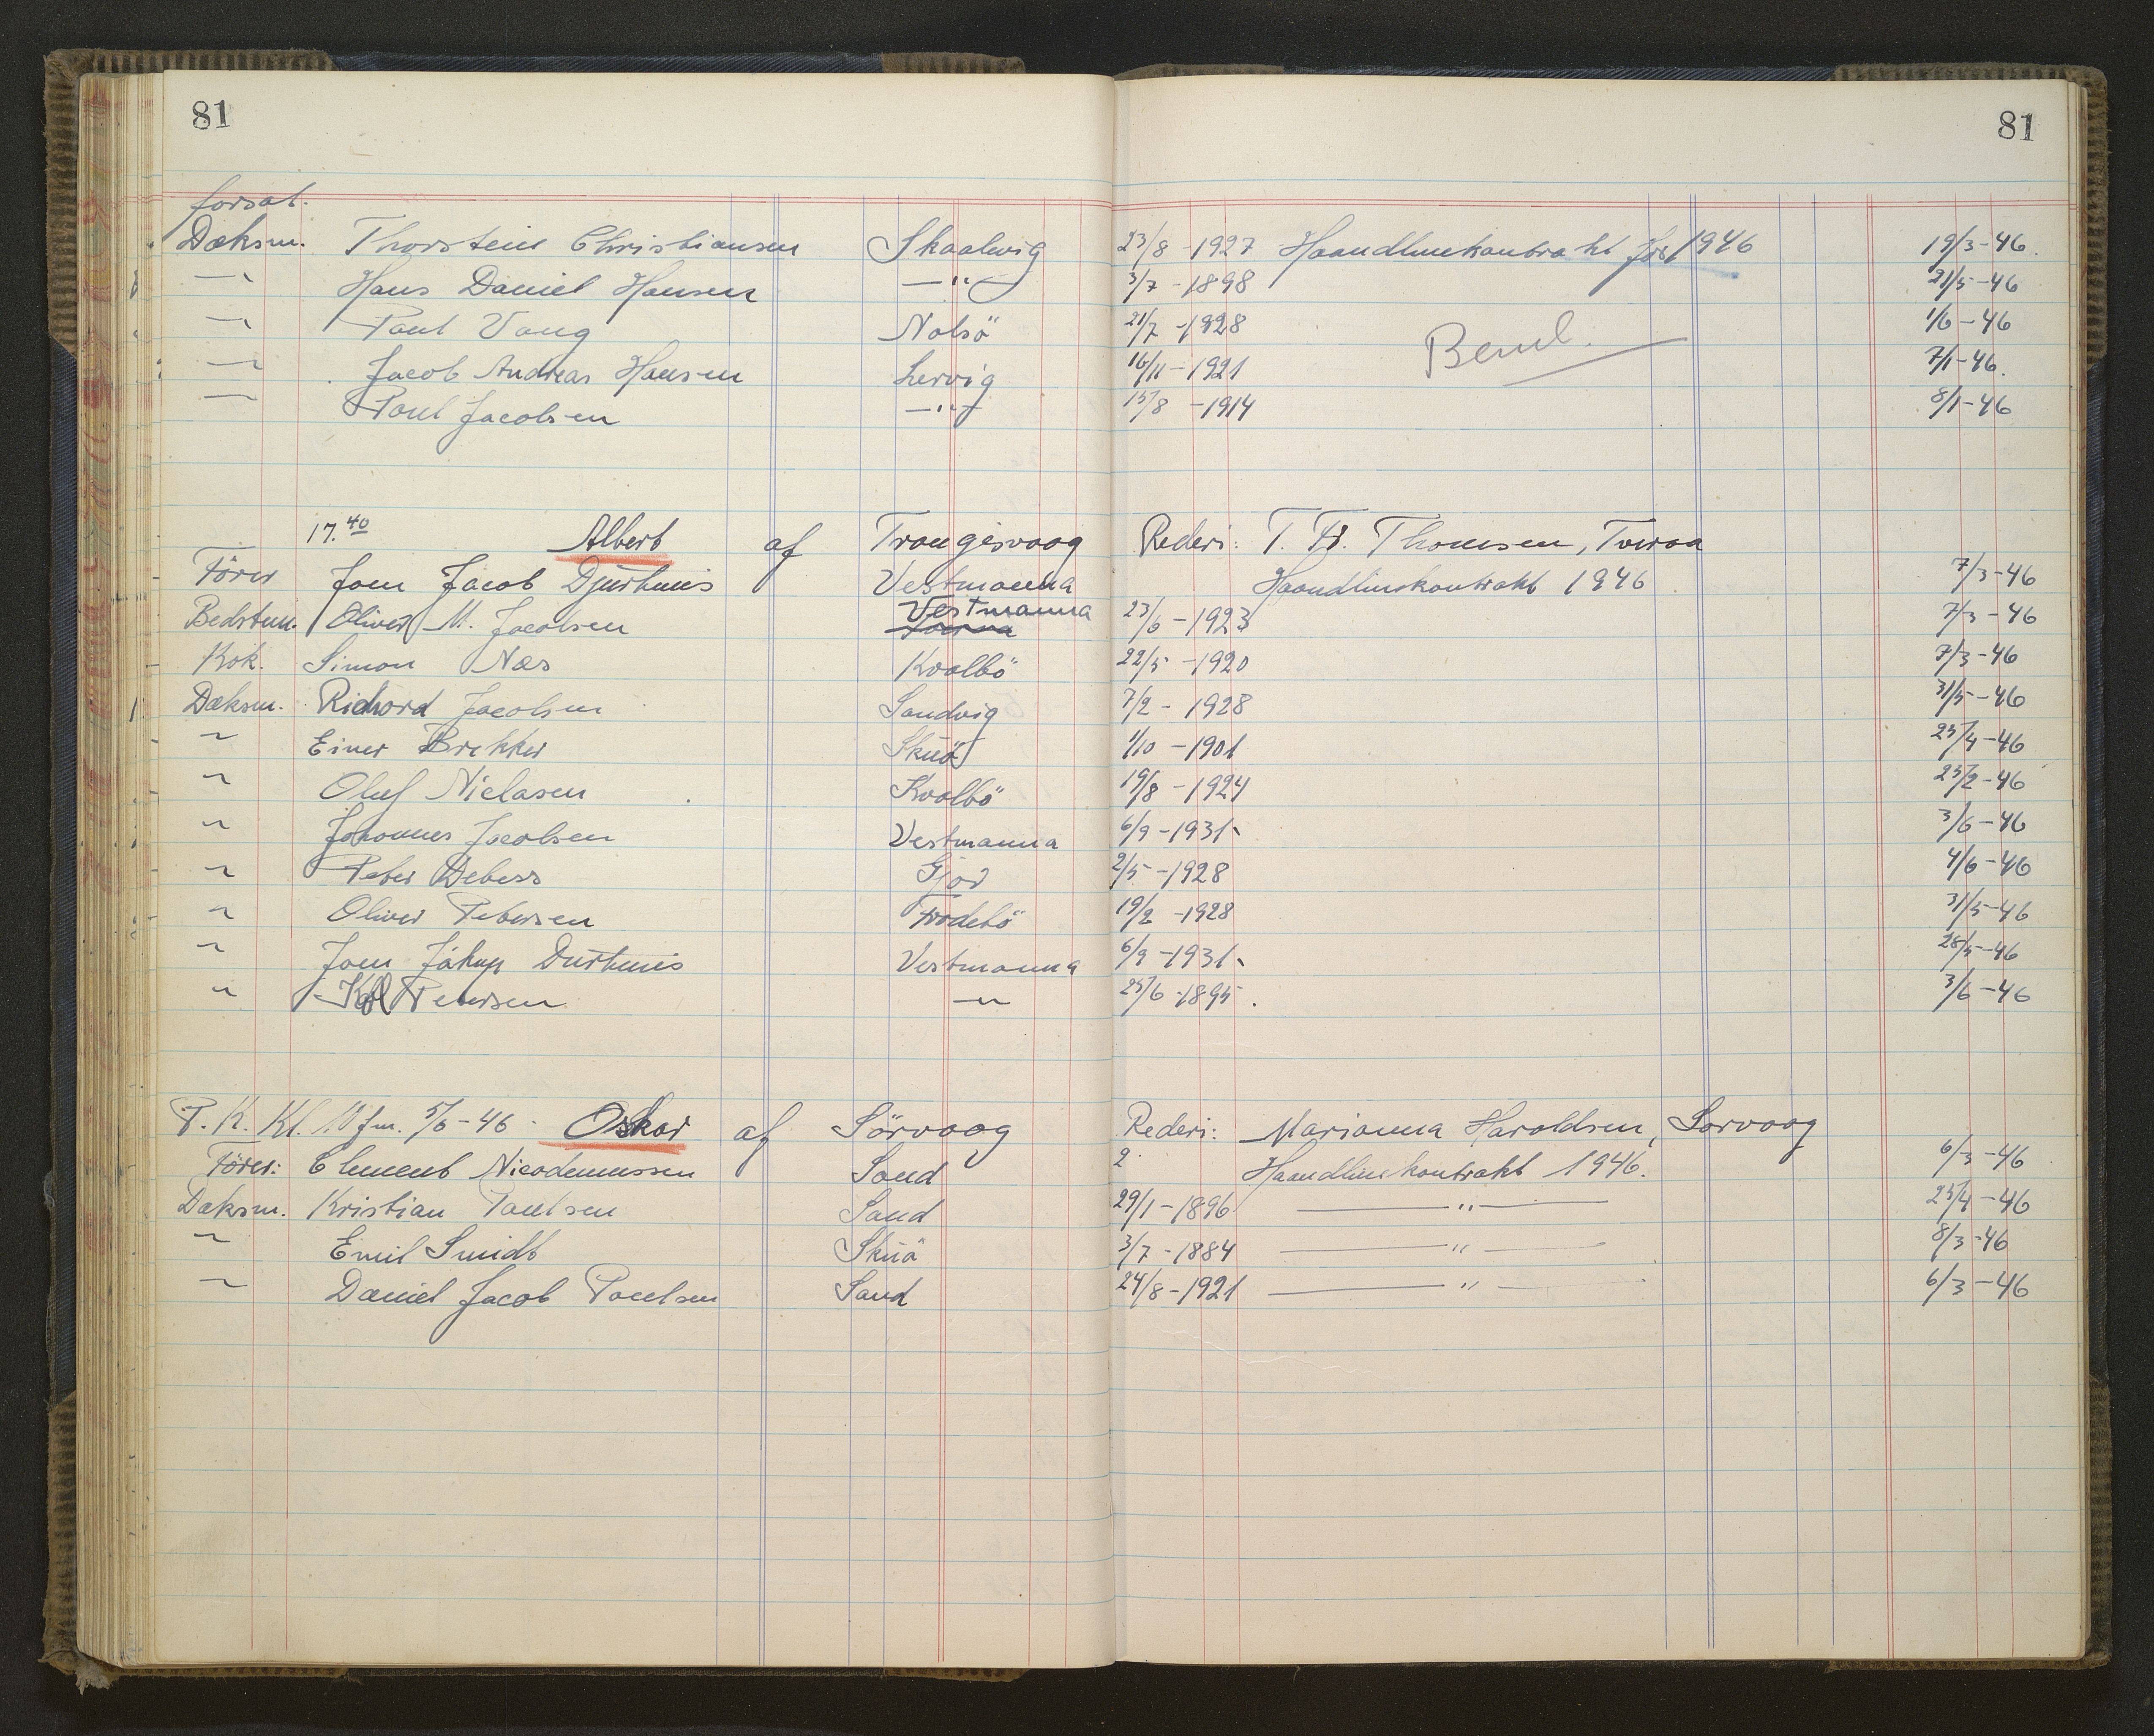 81 81
forsat.
Dæksm. Thorstein Christiansen Skaalvig 23/8 - 1927 Haandlinekontrakt for 1946 19/3-46.
—"— Hans Daniel Hansen —"— 3/7 - 1898 21/5-46
—"— Paul Vang Nolsö 21/7 - 1928 1/6-46
—"— Jacob Andreas Hansen Lervig 16/11 - 1921 7/1-46.
—"— Poul Jacobsen —"— 15/8 - 1914 8/1-46
17.40 Albert af Trangisvaag Rederi: T. Fr. Thomsen, Tveraa
Förer Joen Jacob Djurhuus Vestmanna Haandlinekontrakt 1946 7/3-46
Vestmanna
Bedstm. Oliver M. Jacobsen 23/6 - 1923 7/3-46
Kok. Simon Næs Kvalbö 22/5 - 1920 7/3-46
Dæksm. Richard Jacobsen Sandvig 7/2 - 1928 31/5-46
" Einer Brekker Skuö 1/10 - 1901 23/4-46
" Oluf Nielasen Kvalbö 19/8 - 1924 23/2-46
" Johannes Jacobsen Vestmanna 6/9 - 1931 3/6-46
" Peter Debess Gjov 2/5 - 1928 4/6-46
" Oliver Petersen Frodebö 19/2 - 1928 31/5-46
" Joen Jákup Durhuus Vestmanna 6/9 - 1931 28/5-46
" Petersen —"— 25/6 - 1895. 3/6-46
P. K. Kl. 10 fm. 5/6-46 - Oskar af Sörvaag Rederi: Marianna Haraldsen, Sorvaag
Förer: Clement Nicodemussen Sand 2. Haandlinekontrakt 1946. 6/3-46
Dæksm. Kristian Poulsen Sand 29/1 - 1896 —"— 23/4-46
" Emil Smidt Skuö 3/7 - 1884 —"— 8/3-46
" Daniel Jacob Poulsen Sand 24/8 - 1921 —"— 6/3-46